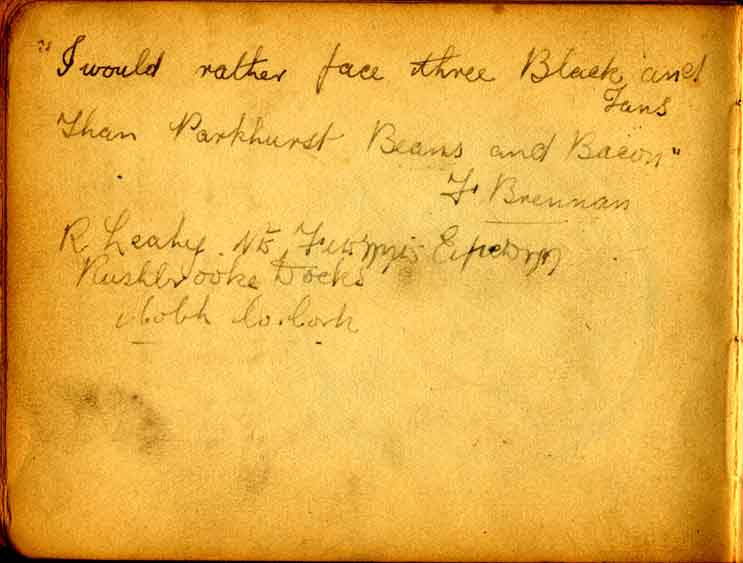 "I would rather face three Black and
Tans
Than Parkhurst Beans and Bacon"
F. Brennan
R Leahy.
Rushbrooke Docks
Cobh Co. Cork